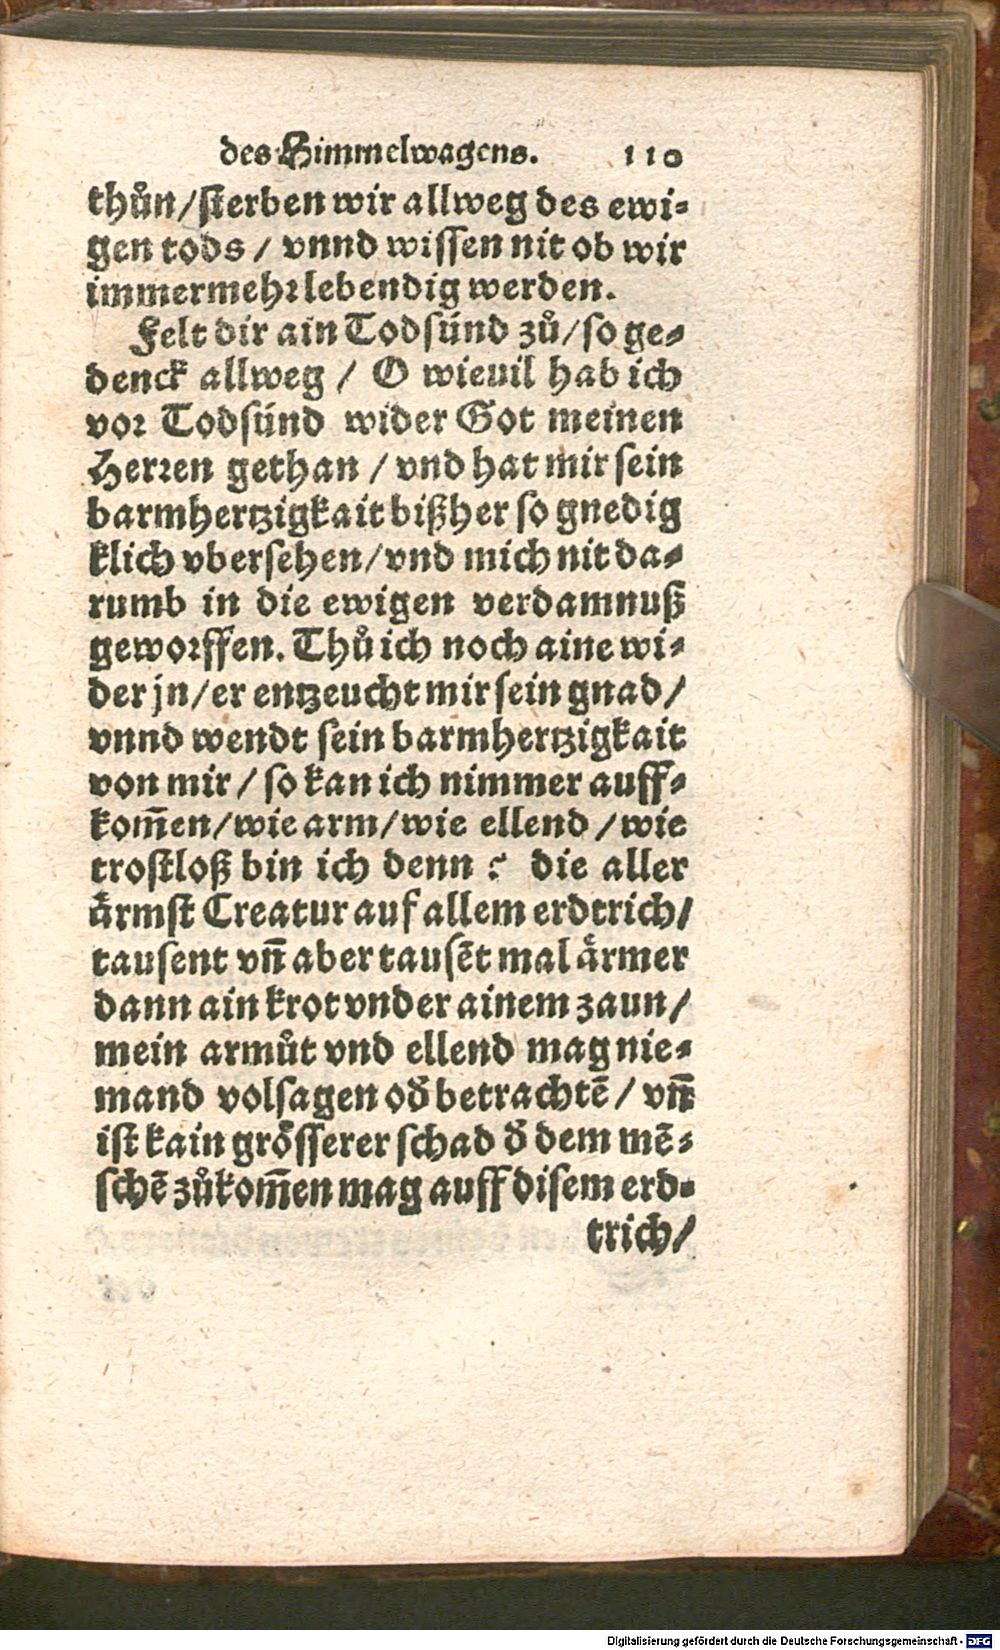 des Himmelwagens. 110
thůn/sterben wir allweg des ewi-
gen tods / vnnd wissen nit ob wir
immermehr lebendig werden.
Felt dir ain Todsünd zů/so ge-
denck allweg / O wieuil hab ich
vor Todsünd wider Got meinen
Herren gethan / vnd hat mir sein
barmhertzigkait bißher so gnedig
klich vbersehen/vnd mich nit da-
rumb in die ewigen verdamnuß
geworffen. Thů ich noch aine wi-
der jn/er entzeucht mir sein gnad/
vnnd wendt sein barmhertzigkait
von mir / so kan ich nimmer auff-
kom̄en/wie arm/wie ellend /wie
trostloß bin ich denn ? die aller
aͤrmst Creatur auf allem erdtrich/
tausent vn̄ aber tausēt mal aͤrmer
dann ain krot vnder ainem zaun/
mein armůt vnd ellend mag nie-
mand volsagen od̄ betrachtē / vn̄
ist kain groͤsserer schad d̄ dem mē-
schē zůkom̄en mag auff disem erd-
trich/
Digitalisierung gefördert durch die Deutsche Forschungsgemeinschaft - DFG